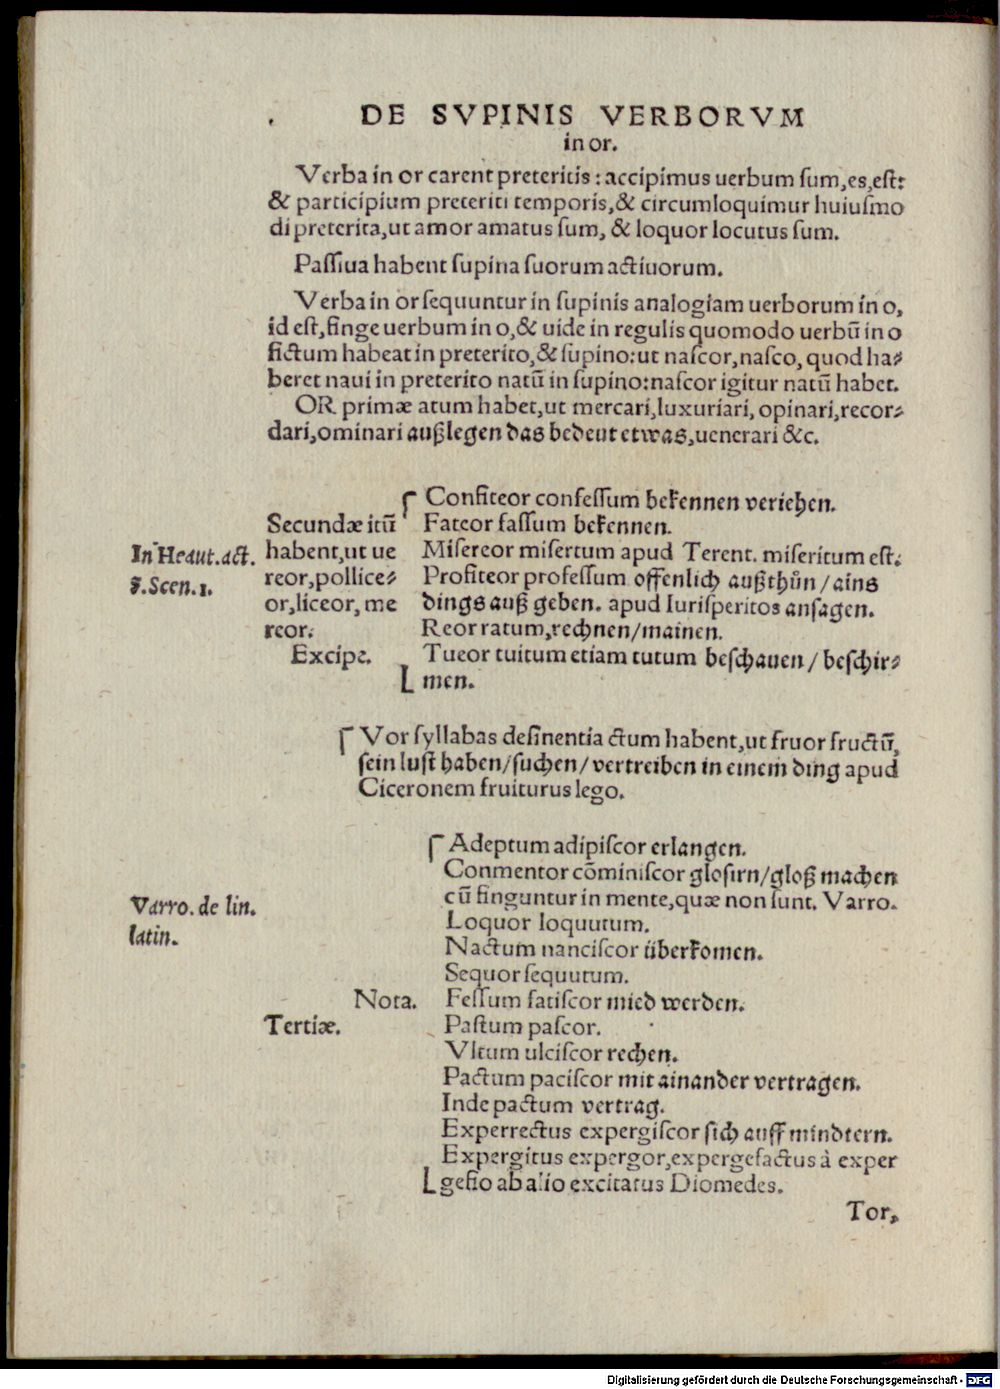 DE SVPINIS VERBORVM
in or.
Verba in or carent preteritis: accipimus uerbum ſum, es, eſt:
& participium preteriti temporis, & circumloquimur huiuſmo
di preterita, ut amor amatus ſum, & loquor locutus ſum.
Paſſiua habent ſupina ſuorum actiuorum.
Verba in or ſequuntur in ſupinis analogiam uerborum in o,
id eſt, finge uerbum in o, & uide in regulis quomodo uerbū in o
fictum habeat in preterito, & ſupino: ut naſcor, naſco, quod ha⸗
beret naui in preterito natū in ſupino: naſcor igitur natū habet.
OR primæ atum habet, ut mercari, luxuriari, opinari, recor⸗
dari, ominari außlegen das bedeut etwas, uenerari &c.
Secundæ itū
habent, ut ue
reor, pollice⸗
or, liceor, me
reor.
Excipe.
In Heaut. act.
5. Scen. 1.
Confiteor confeſſum bekennen veriehen.
Fateor faſſum bekennen.
Miſereor miſertum apud Terent. miſeritum eſt.
Profiteor profeſſum offenlich außthůn / ains
dings auß geben. apud Iuriſperitos anſagen.
Reor ratum, rechnen/mainen.
Tueor tuitum etiam tutum beſchauen / beſchir⸗
men.
Vor ſyllabas deſinentia ctum habent, ut fruor fructū,
ſein luſt haben/ſuchen/vertreiben in einem ding apud
Ciceronem fruiturus lego.
Adeptum adipiſcor erlangen.
Conmentor cōminiſcor gloſirn/gloß machen
cū finguntur in mente, quæ non ſunt. Varro.
Varro. de lin.
latin.
Loquor loquutum.
Nactum nanciſcor überkomen.
Sequor ſequutum.
Nota. Feſſum fatiſcor mied werden.
Tertiæ. Paſtum paſcor.
Vltum ulciſcor rechen.
Pactum paciſcor mit ainander vertragen.
Inde pactum vertrag.
Experrectus expergiſcor ſich auff mindtern.
Expergitus expergor, expergefactus à exper
gefio ab alio excitatus Diomedes.
Tor⸗
Digitalisierung gefördert durch die Deutsche Forschungsgemeinschaft - DFG